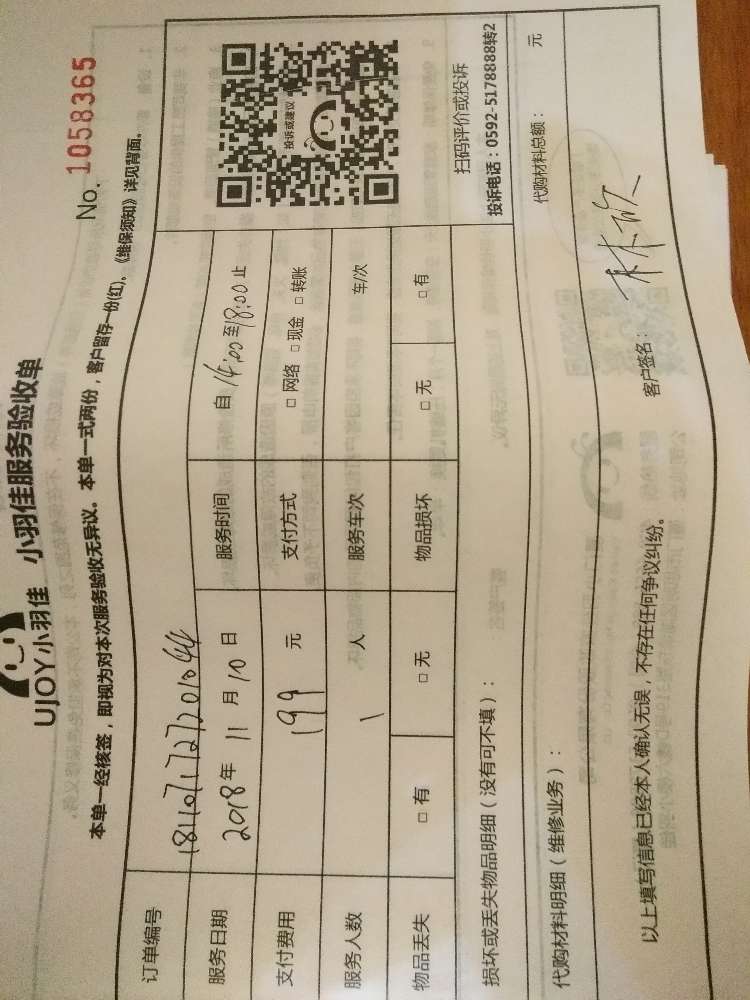 UJOY小羽佳 小羽佳服务验收单
No. 1058365
本单一经核签，即视为对本次服务验收无异议。本单一式两份，客户留存一份(红)，《维保须知》详见背面。
订单编号 1811071727201044
服务日期 2018年 11月 10日 服务时间 自 14:00 至 18:00 止
支付费用 199 元 支付方式 □ 网络 □ 现金 □ 转账
服务人数 1 人 服务车次 车/次
物品丢失 □ 有 □ 无 物品损坏 □ 无 □ 有
投诉或建议
扫码评价或投诉
投诉电话：0592-5178888转2
损坏或丢失物品明细（没有可不填）：
代购材料明细（维修业务）： 代购材料总额： 元
以上填写信息已经本人确认无误，不存在任何争议纠纷。 客户签名：